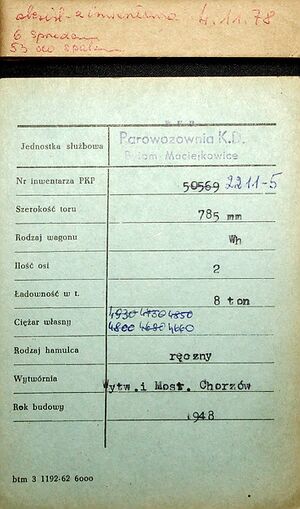 4.11.78
6
53
P.K.P.
Jednostka służbowa Parowozownia K.D.
Bytom-Maciejkowice
Nr inwentarza PKP 50569 2211-5
Szerokość toru 785 mm
Rodzaj wagonu Wh
Ilość osi 2
Ładowność w t. 8 ton
4930 4850
Ciężar własny 4800 4680 4660
Rodzaj hamulca ręczny
Wytwórnia Wytw.i Most. Chorzów
Rok budowy 1948
btm 3 1192-62 6000